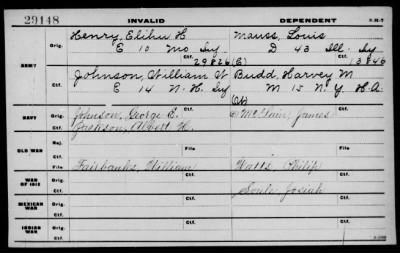 29148 INVALID DEPENDENT
Orig. Henry, Elihu H Mauss, Louis
E 10 Mo Inf D 43 Ill. Inf
29826(C) 13846
ARMY
Ctf. Johnson, William W Budd, Harvey M
E 14 N. H. Inf M 15 N. Y. H. A.
NAVY
Orig. Johnson, George E. McClain, James
Ctf. Jackson, Albert H.
OLD WAR
Rej. File
Ctf. Fairbanks, William File Watts, Philip
WAR OF 1812
Orig.
Ctf. Soule, Josiah
MEXICAN WAR
Orig.
Ctf. Ctf.
INDIAN WAR
Orig.
Ctf. Ctf.